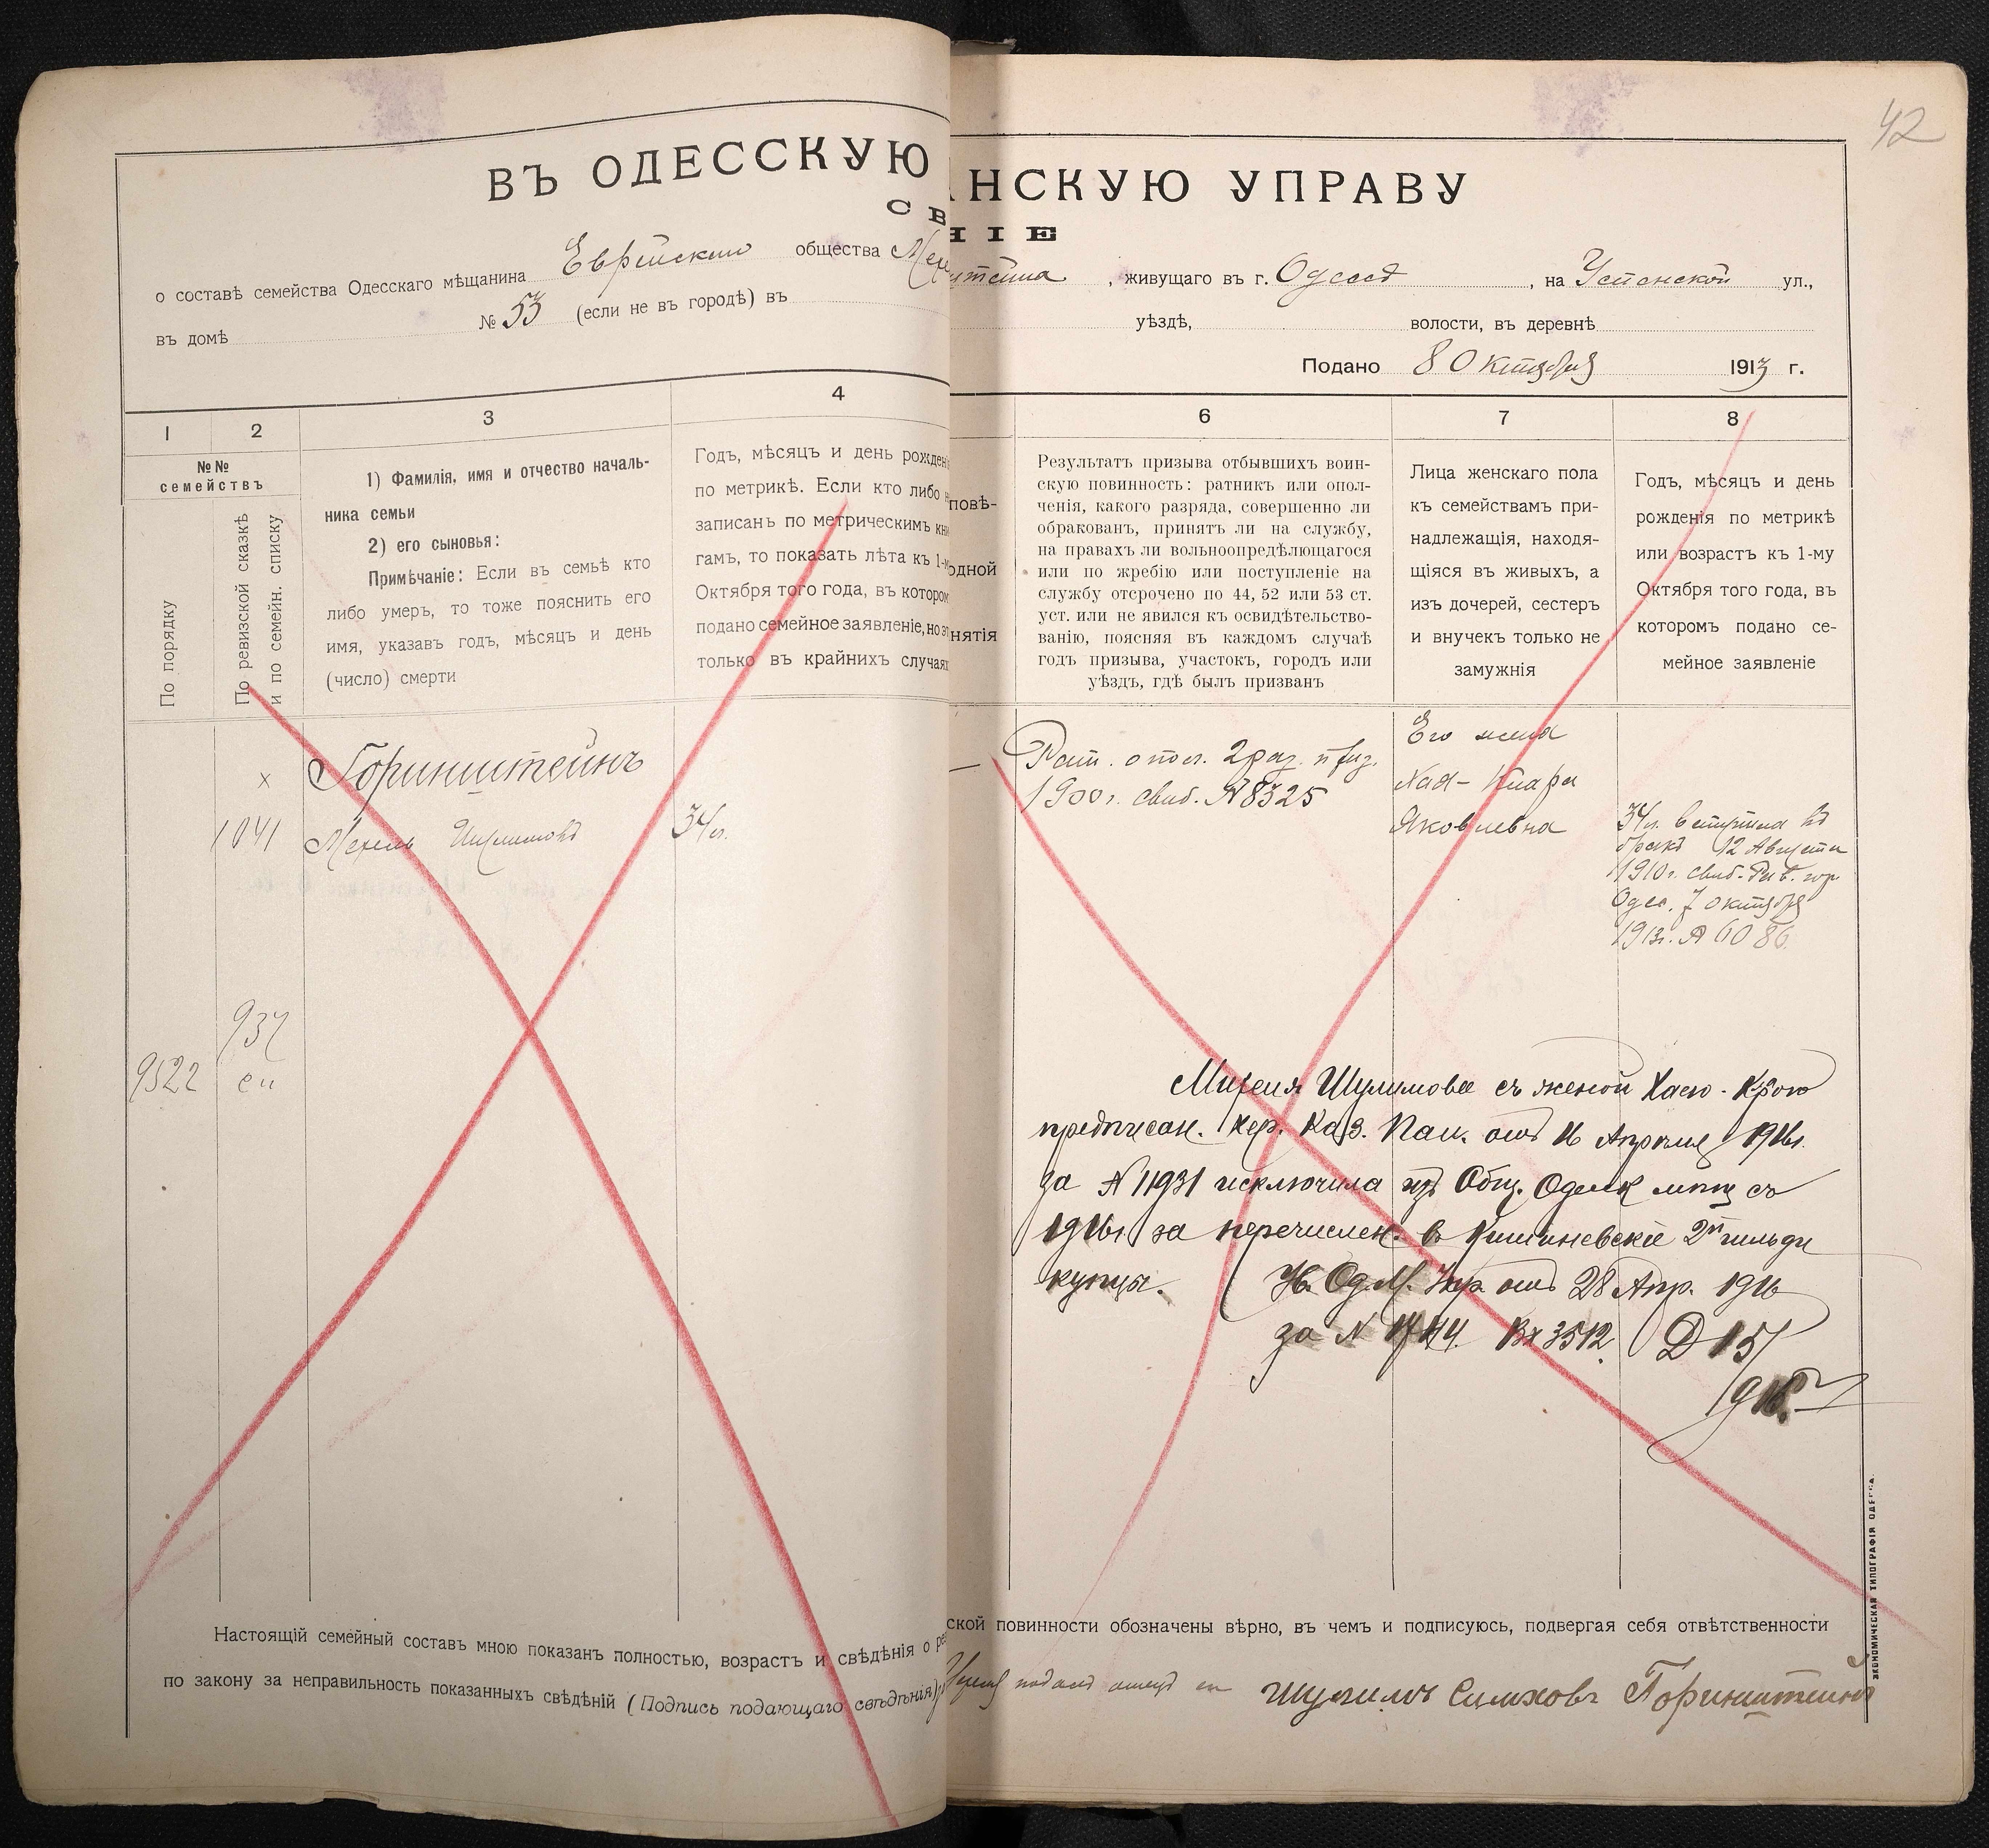 42
ВЪ ОДЕССКУЮ
АНСКУЮ УПРАВУ
СВ
НІЕ
о составѣ семейства Одесскаго мѣщанина Еврейскаго общества
, живущаго въ г. Одессѣ , на Успенской ул.,
въ домѣ № 53 (если не въ городѣ) въ
уѣздѣ, волости, въ деревнѣ
Подано 8 Октября 1913 г.
1
2
3
4
6
7
8
№№
семействъ
По порядку
По ревизской сказкѣ
и по семейн. списку
1) Фамилія, имя и отчество началь-
ника семьи
2) его сыновья:
Примѣчаніе: Если въ семьѣ кто
либо умеръ, то тоже пояснить его
имя, указавъ годъ, мѣсяцъ и день
(число) смерти
Годъ, мѣсяцъ и день рожденія
по метрикѣ. Если кто либо
записанъ по метрическимъ кни
гамъ, то показать лѣта къ 1-м
Октября того года, въ котором
подано семейное заявленіе, но эт
только въ крайнихъ случаях
повѣ-
одной
нятія
Результатъ призыва отбывшихъ воин-
скую повинность: ратникъ или опол-
ченія, какого разряда, совершенно ли
обракованъ, принятъ ли на службу,
на правахъ ли вольноопредѣлющагося
или по жребію или поступленіе на
службу отсрочено по 44, 52 или 53 ст.
уст. или не явился къ освидѣтельство-
ванію, поясняя въ каждомъ случаѣ
годъ призыва, участокъ, городъ или
уѣздъ, гдѣ былъ призванъ
Лица женскаго пола
къ семействамъ при-
надлежащія, находя-
щіяся въ живыхъ, а
изъ дочерей, сестеръ
и внучекъ только не
замужнія
Годъ, мѣсяцъ и день
рожденія по метрикѣ
или возрастъ къ 1-му
Октября того года, въ
котормъ подано се-
мейное заявленіе
х
1041
Горинштейнъ
Мехель Шулимовъ
34 л.
Рат. опол. 2 раз. приз.
1900 г. свид. № 8325
Его жена
Хая- Клара
Яковлевна
34 л. вступила въ
бракъ 12 Августа
1910 г. свид. Рав. гор
Одес. 7 октября
1913 г. № 6086.
937
9522
сп
Шулимовъ съ женой Хаею-
предписан. Хер. Каз. Пал. отъ 16 Апрѣля 1916 г.
за № 11931 исключила изъ Общ. Одесск мѣщ съ
1916 г за перечислен. въ Кишиневскіе 2й гильди
купцы. Од. М. Упр. отъ 28 Апр. 1916
за № Вх 3512. Д 15/
916
Настоящій семейный составъ мною показанъ полностью, возрастъ и свѣдѣнія о
ской повинности обозначены вѣрно, въ чемъ и подписуюсь, подвергая себя отвѣтственности
по закону за неправильность показанныхъ свѣдѣній (Подпись подающаго свѣдѣнія)
подалъ отецъ его Шулимъ Симховъ Горинштейнъ
ЭКОНОМИЧЕСКАЯ ТИПОГРАФІЯ ОДЕССА.